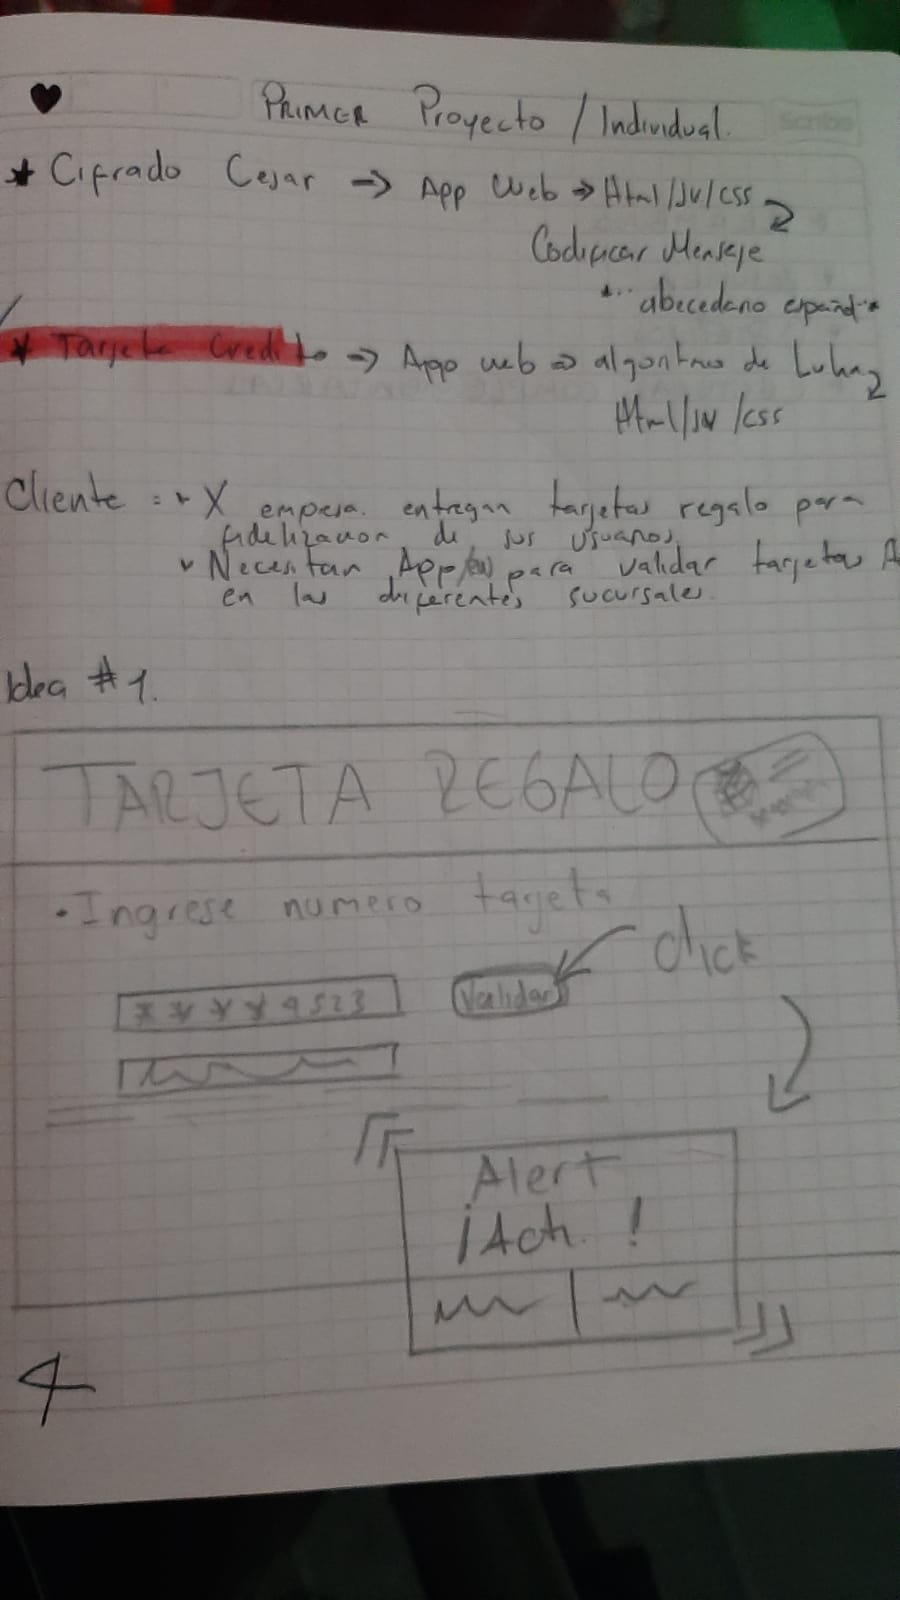 PRIMER Proyecto / Individual.
Scribe
* Cifrado Cesar → App Web → Html/JV/CSS
Codificar Mensaje
*.. abecedario español *
* Tarjeta Credito → App web → algoritmo de Luhn
Html/JV/CSS
Cliente : X empresa. entregan tarjetas regalo para
fidelizacion de sus usuarios.
Necesitan App para validar tarjetas
en las diferentes sucursales.
Idea #1.
TARJETA REGALO
• Ingrese numero tarjeta
* * * * 4523 Validar Click
Alert
¡Act. !
4